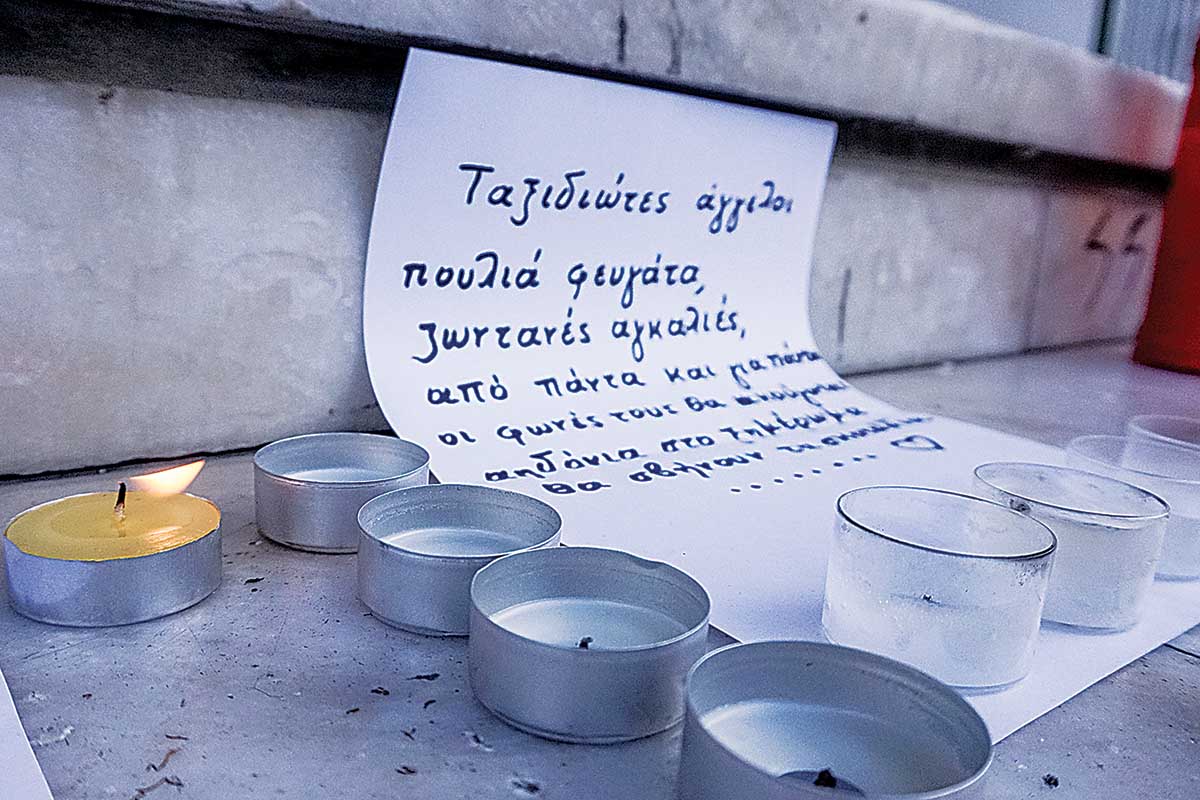 Ταξιδιώτες άγγελοι
πουλιά φευγάτα,
ζωντανές αγκαλιές,
από πάντα και για πάντα
οι φωνές τους θα ακούγονται
αηδόνια στο ξημέρωμα
θα σβήνουν τη
.......